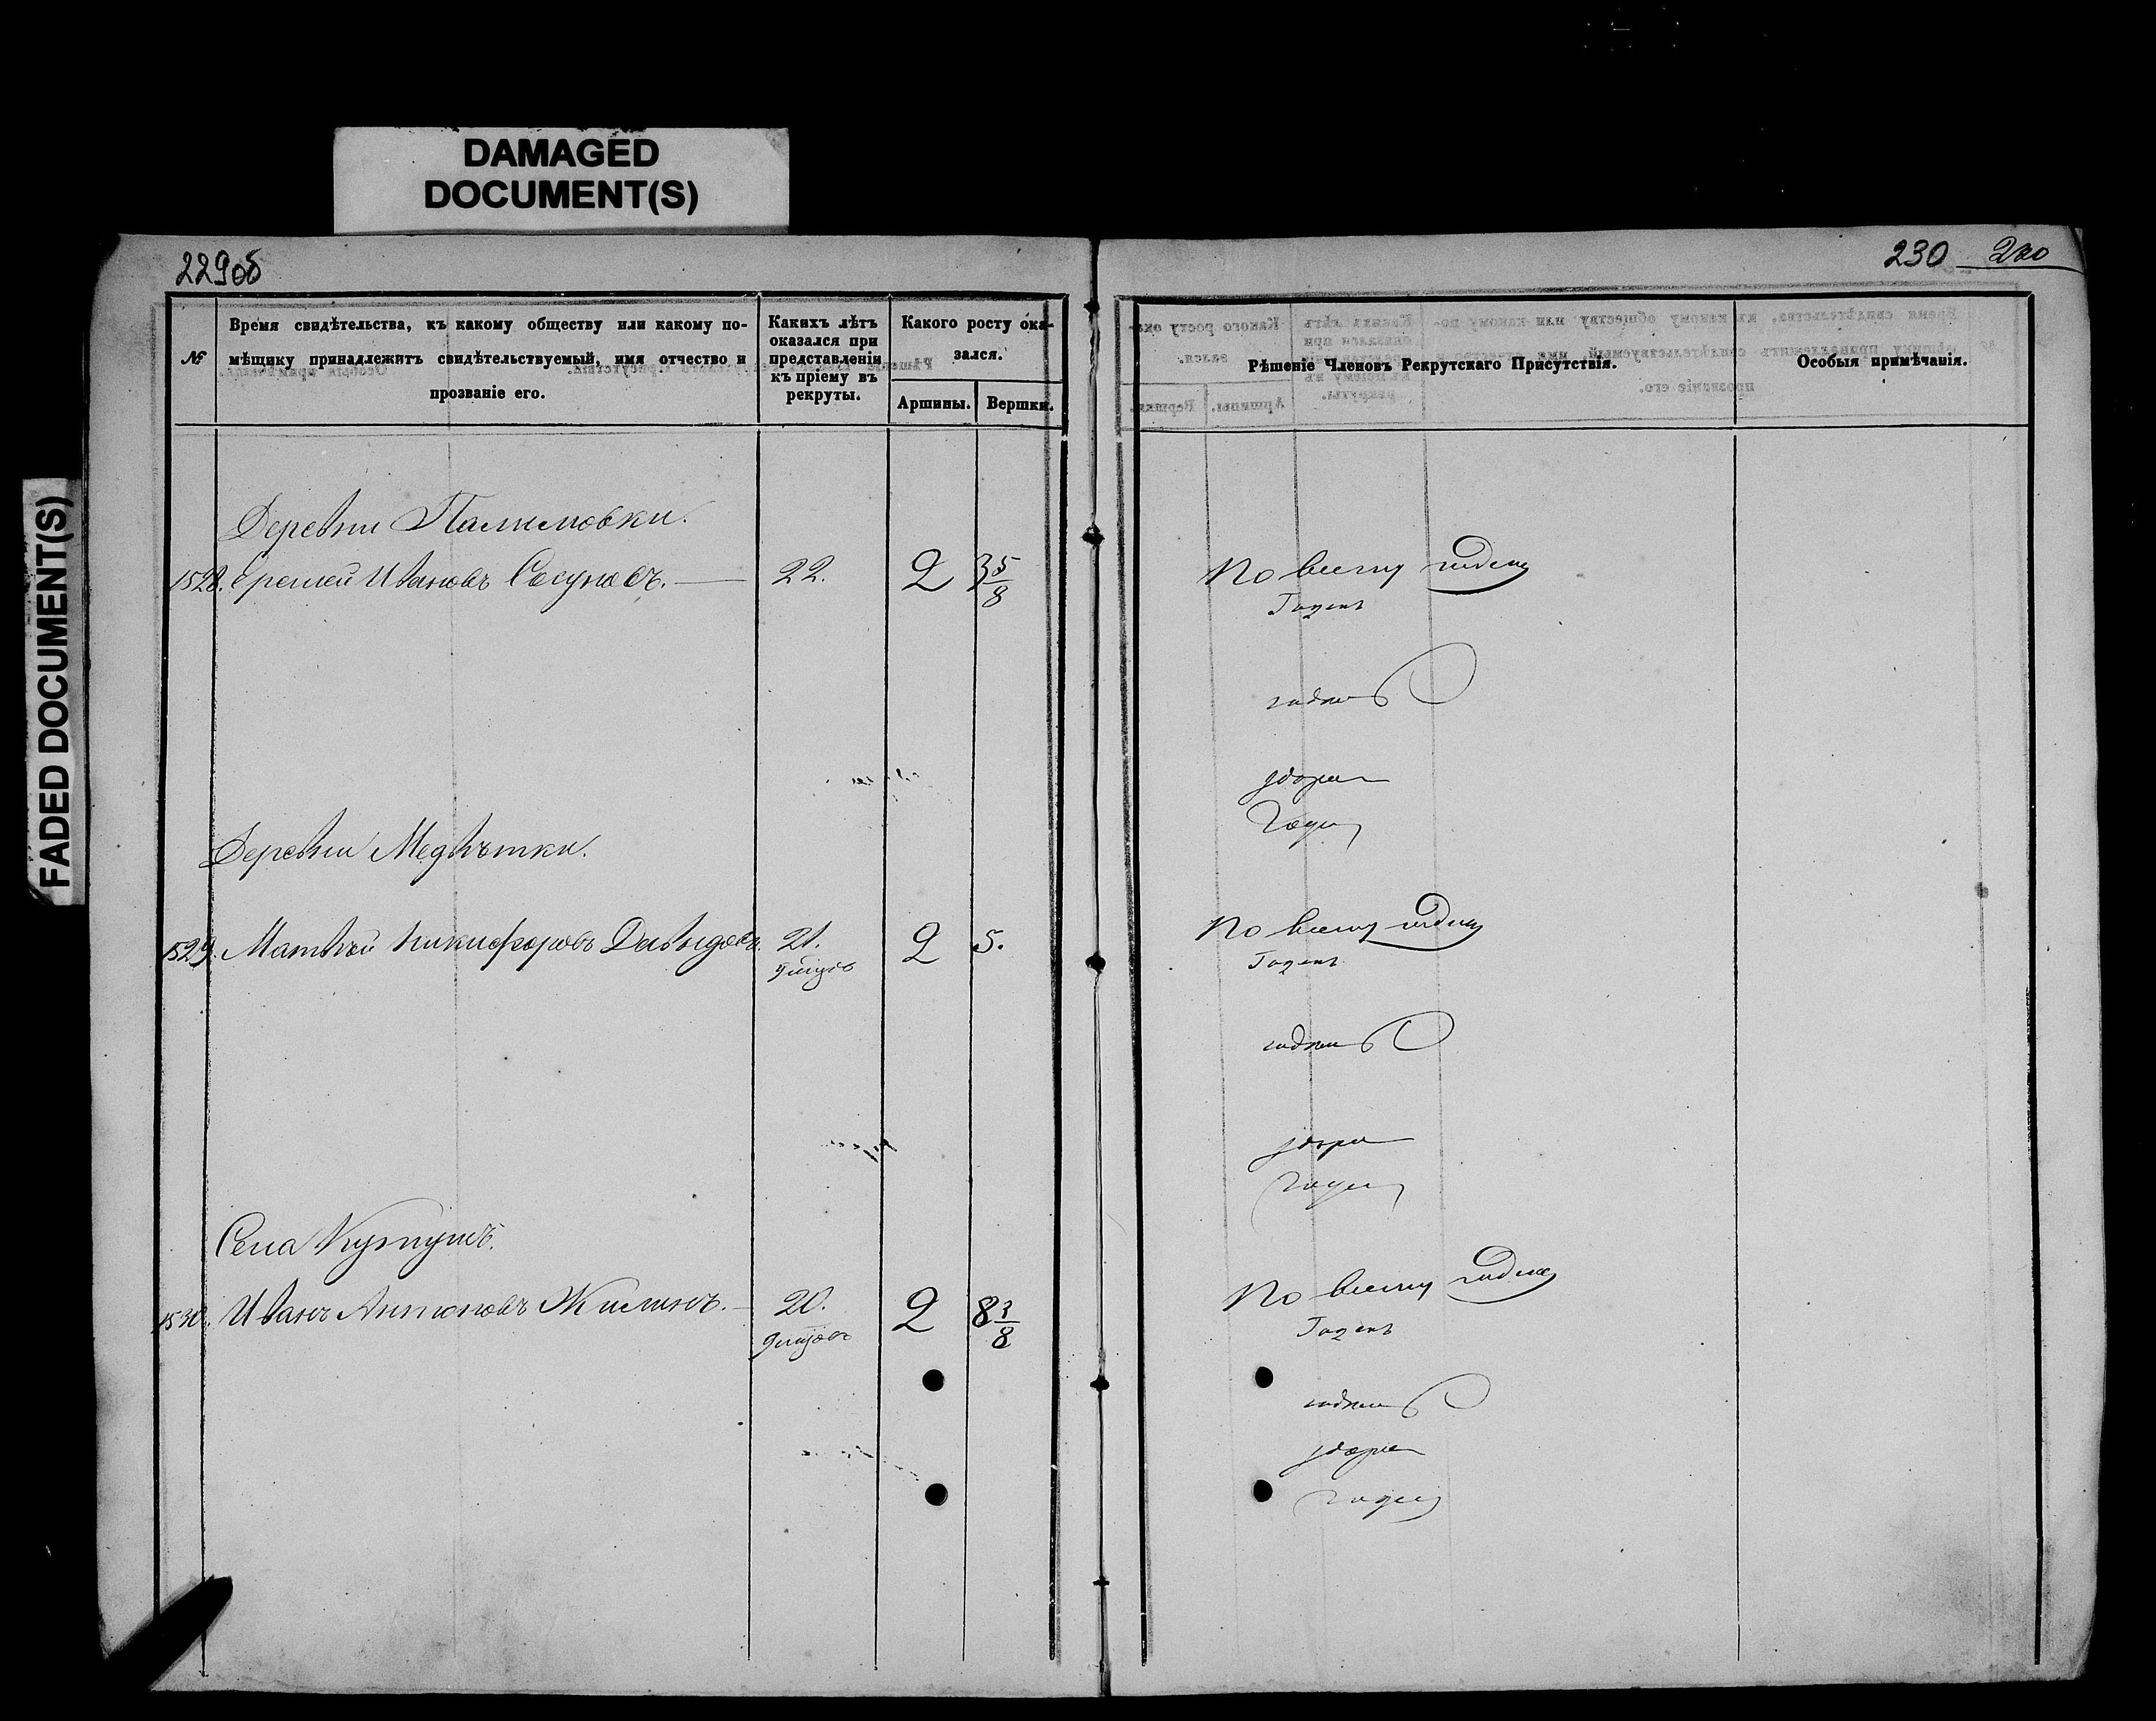 DAMAGED
DOCUMENT(S)
FADED DOCUMENT(S)
229об
№
Время свидѣтельства, къ какому обществу или какому по-
мѣщику принадлежитъ свидѣтельствуемый, имя отчество и
прозваніе его.
Какихъ лѣтъ
оказался при
представленіи
къ пріему въ
рекруты.
Какого росту ока-
зался.
Аршины. Вершки.
Деревни
1528. Еремей Ивановъ Сосуновъ. 22. 2 3 5/8
Деревни
1529. Матвѣй Никифоровъ Давыдовъ. 21. 2 5.
Села
1530. Иванъ Антоновъ Жилинъ. 20. 2 8 3/8
230 230
Рѣшеніе Членовъ Рекрутскаго Присутствія.
Особыя примѣчанія.
По всему годенъ
Годенъ
годенъ
годенъ
По всему годенъ
Годенъ
годенъ
годенъ
По всему годенъ
Годенъ
годенъ
годенъ